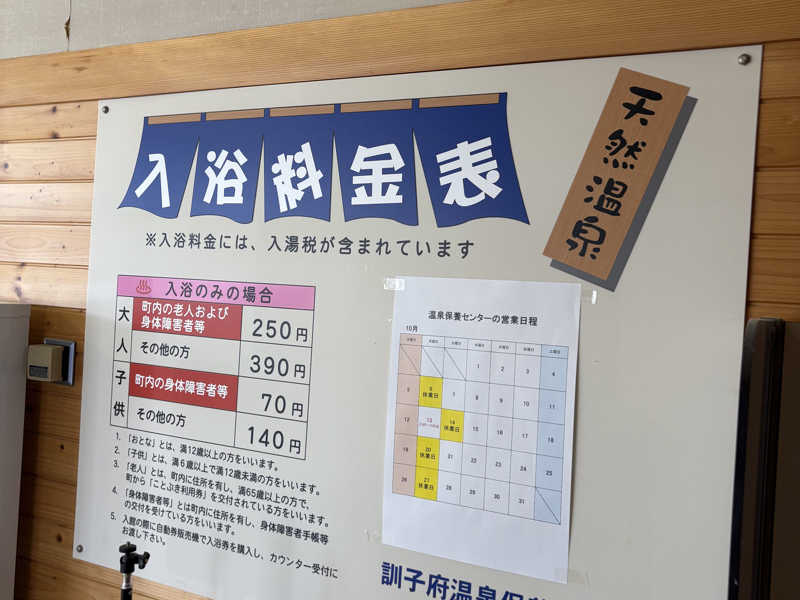 入浴料金表
天然温泉
※入浴料金には、入湯税が含まれています
入浴のみの場合
大人
町内の老人および
身体障害者等
250円
その他の方
390円
子供
町内の身体障害者等
70円
その他の方
140円
1. 「おとな」とは、満12歳以上の方をいいます。
2. 「子供」とは、満6歳以上で満12歳未満の方をいいます。
3. 「老人」とは、町内に住所を有し、満65歳以上の方で、
町から「ことぶき利用券」を交付されている方をいいます。
4. 「身体障害者等」とは町内に住所を有し、身体障害者手帳等
の交付を受けている方をいいます。
5. 入館の際に自動券販売機で入浴券を購入し、カウンター受付に
お渡し下さい。
温泉保養センターの営業日程
10月
日曜日 月曜日 火曜日 水曜日 木曜日 金曜日 土曜日
1 2 3 4
5 6 7 8 9 10 11
休業日
12 13 14 15 16 17 18
休業日
19 20 21 22 23 24 25
休業日
26 27 28 29 30 31
休業日
訓子府温泉保